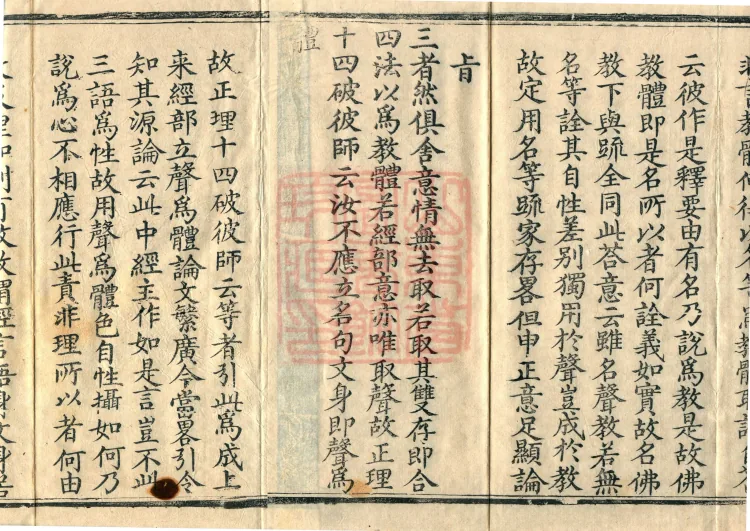 云彼作是釋要由有名乃說爲教是故佛
教體即是名所以者何詮義如實故名佛
教下與䟽全同此荅意云雖名聲教若無
名等詮其自性差別獨用於聲豈成於教
故定用名等䟽家存畧但申正意足顯論
㫖
三者然俱舍意情無去取若取其雙存即合
四法以爲教體若經部意亦唯取聲故正理
十四破彼師云汝不應立名句文身即聲爲
體
故正理十四破彼師云等者引此爲成上
來經部立聲爲體論文繁廣今當畧引令
知其源論云此中經主作如是言豈不此
三語爲性故用聲爲體色自性攝如何乃
說爲心不相應行此責非理所以者何由